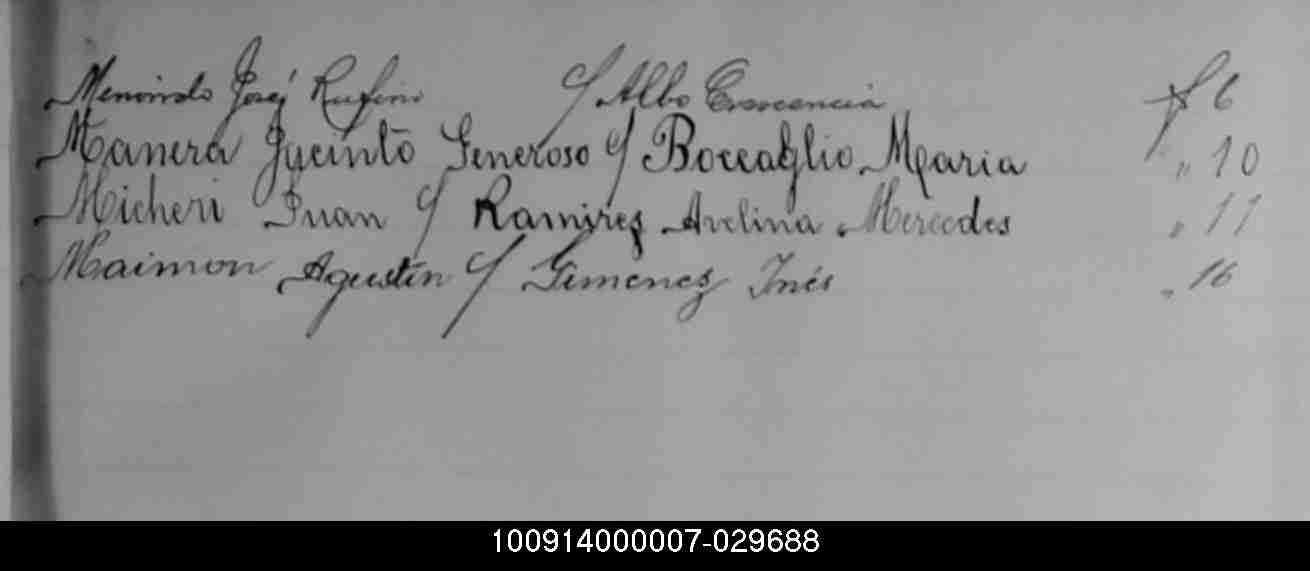 José Rufino y Albo Crescencia f 6
Manera Jacinto Generoso y Boccaglio Maria " 10
Micheri Juan y Ramirez Avelina Mercedes " 11
Maimon Agustín y Gimenez Inés " 16
100914000007-029688